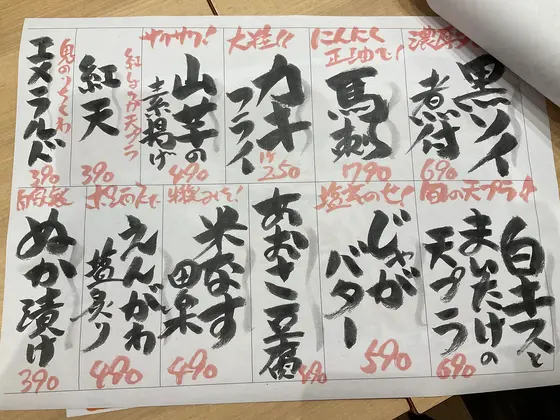 黒ソイ
煮付
690
にんにく
正油で!
馬刺
790
大粒!!
カキ
フライ
1ケ
250
サクサク!
山芋の
素揚げ
490
紅しょうが天プラ
紅天
390
エメラルド
390
旬の天プラ
白キスと
まいたけの
天プラ
690
塩辛のせ!
じゃが
バター
590
あおさ豆腐
490
米なす
田楽
490
えんがわ
塩炙り
490
自家製
ぬか漬け
390